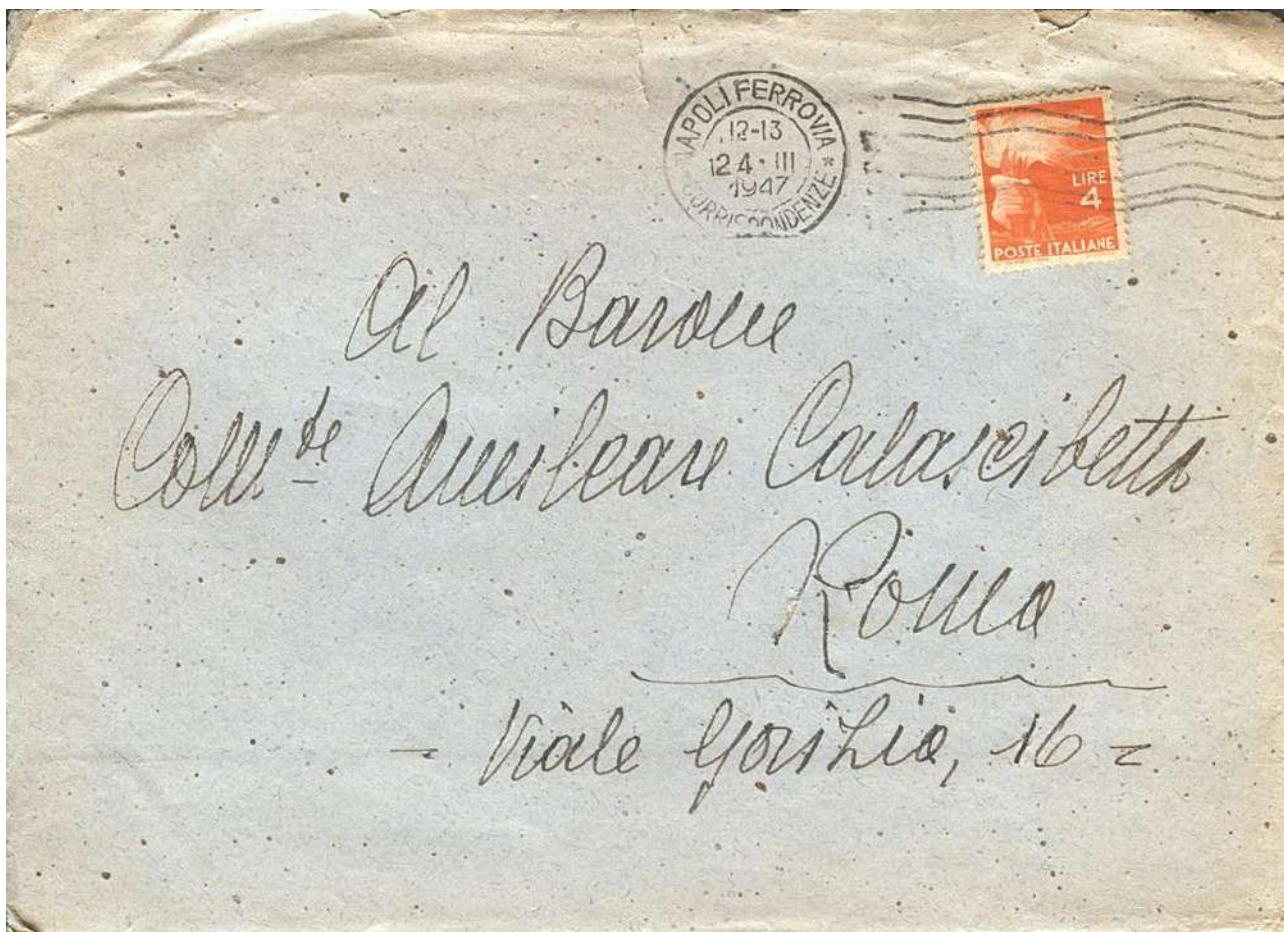 NAPOLI FERROVIA
12-13
124·III
1947
CORRISPONDENZE
LIRE
4
POSTE ITALIANE
Al Barone
Comte Amilcare Calascibetta
Roma
- Viale Gorizia, 16 =